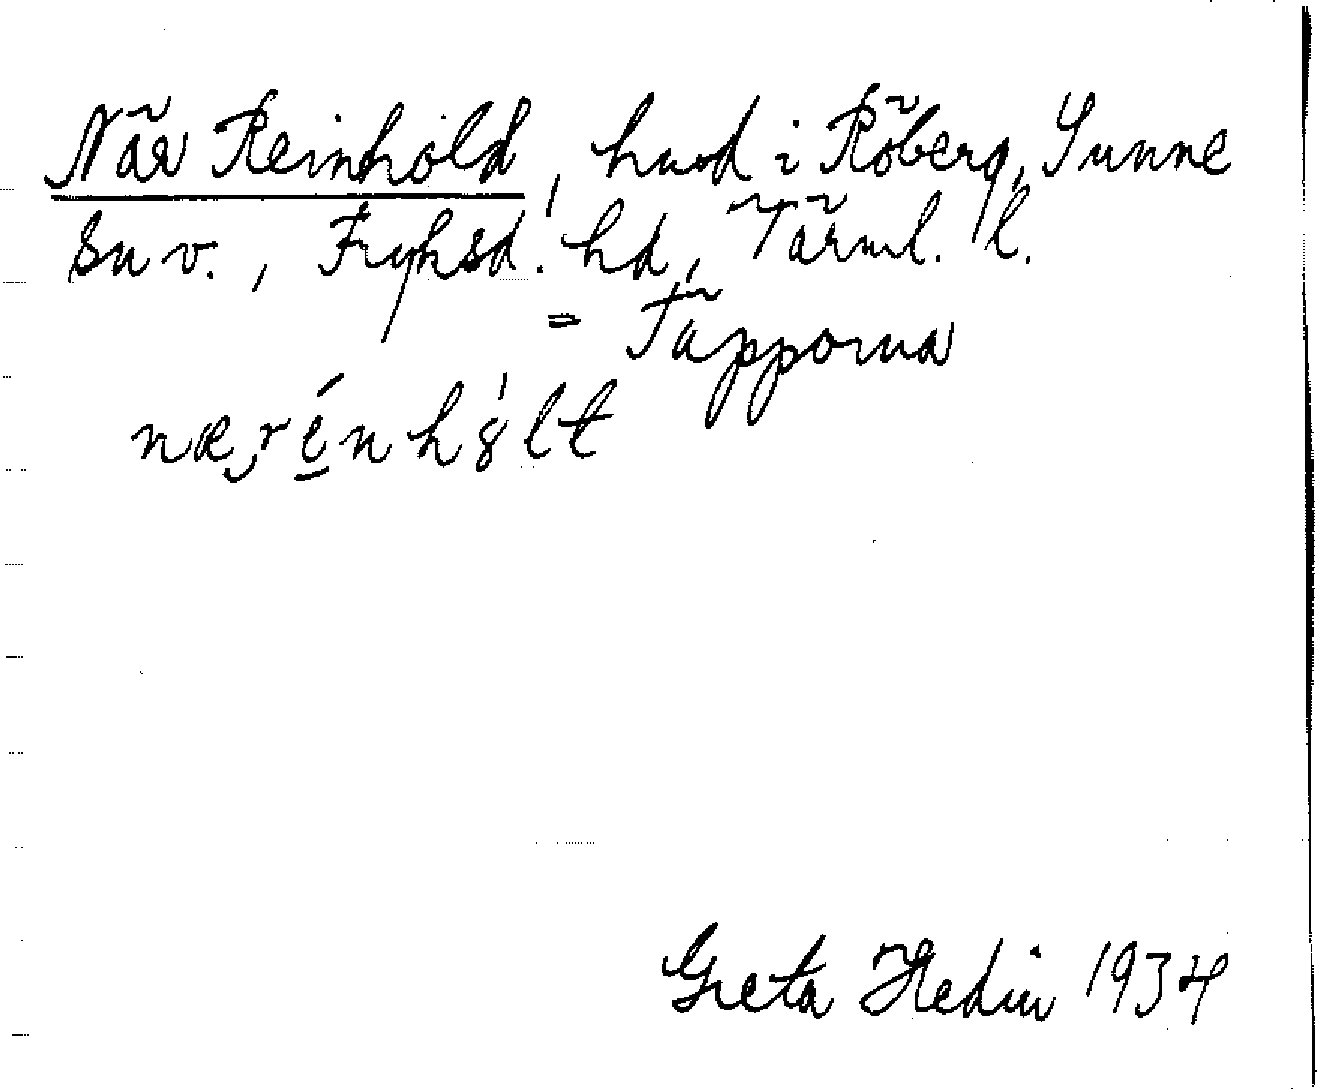 När Reinhold, hmd i Röberg, Sunne
sn v., Fryksd. hd, Värml. l.
= Täpporna
Greta Hedin 1934